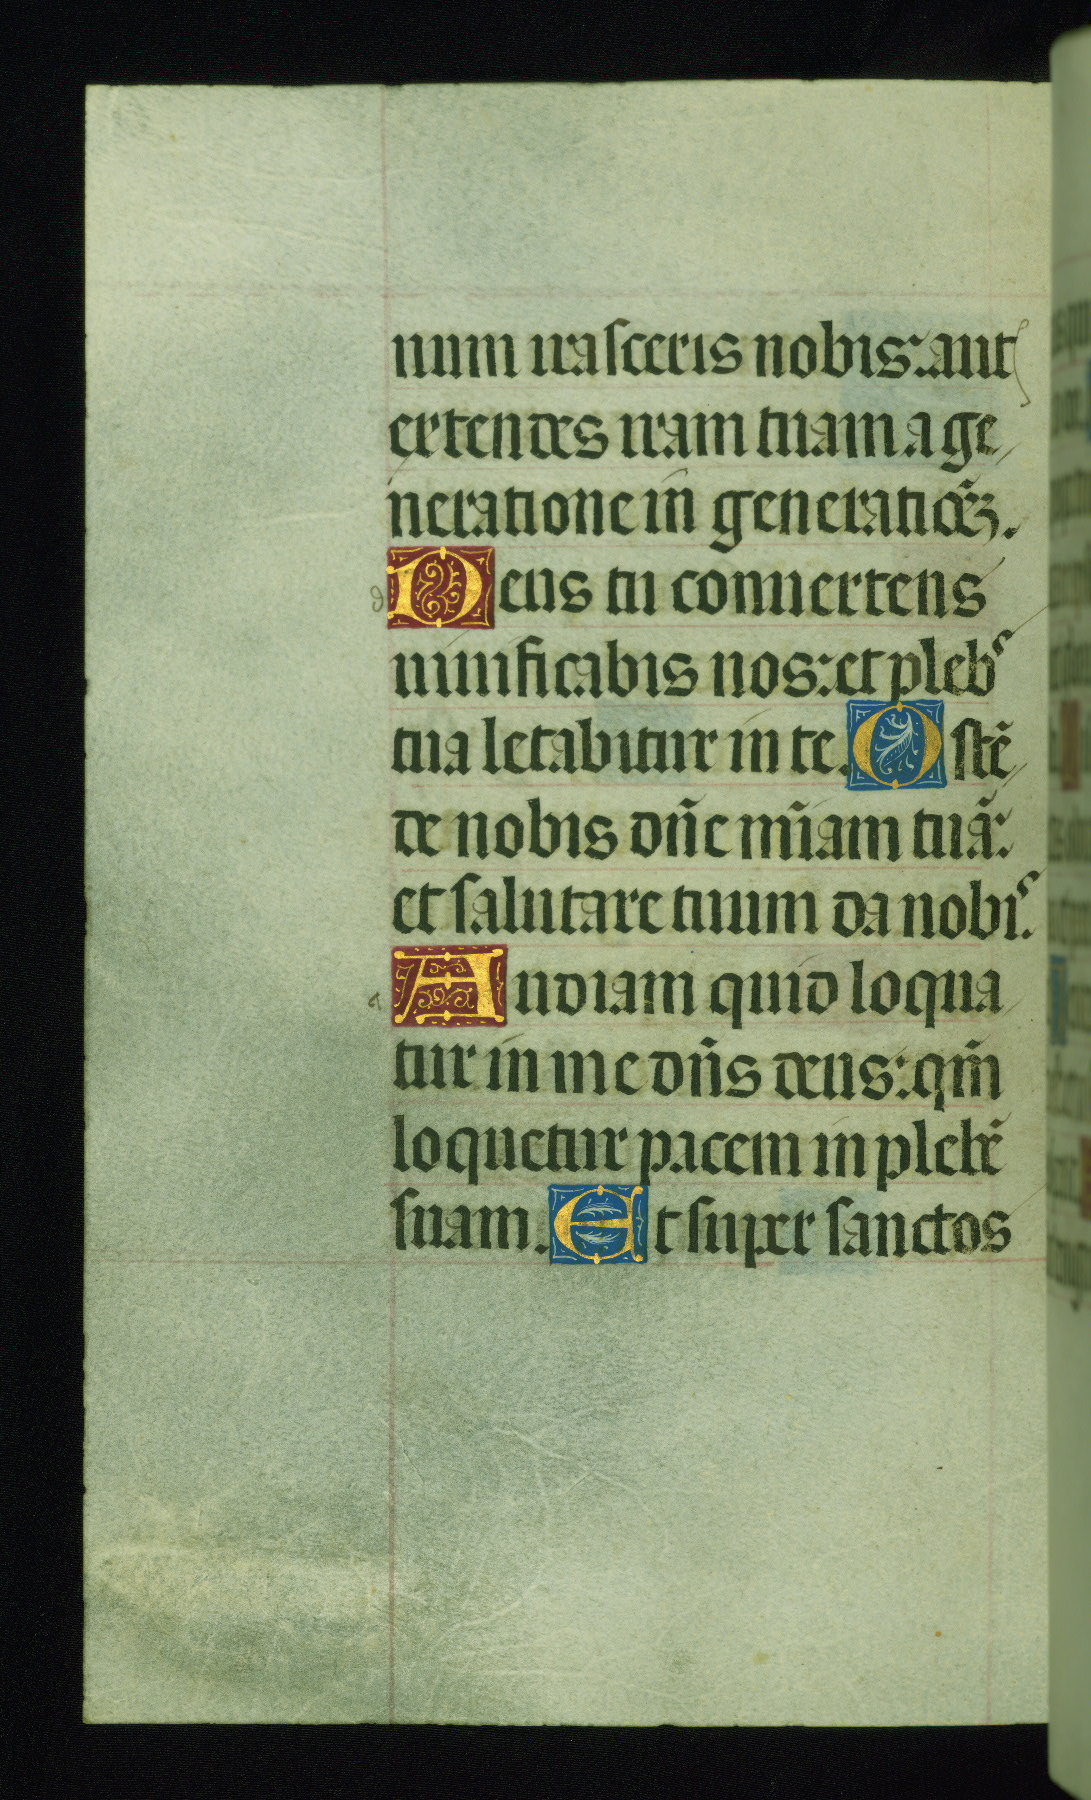 num irasceris nobis: aut
extendes iram tuam a ge
neratione in generatiōeꝫ.
Deus tu conuertens
uiuificabis nos: et plebˢ
tua letabitur in te. Ostē
de nobis dn̄e mīam tuā:
et salutare tuum da nobiˢ.
Audiam quid loqua
tur in me dn̄s deus: qm̄
loquetur pacem in plebē
suam. Et super sanctos